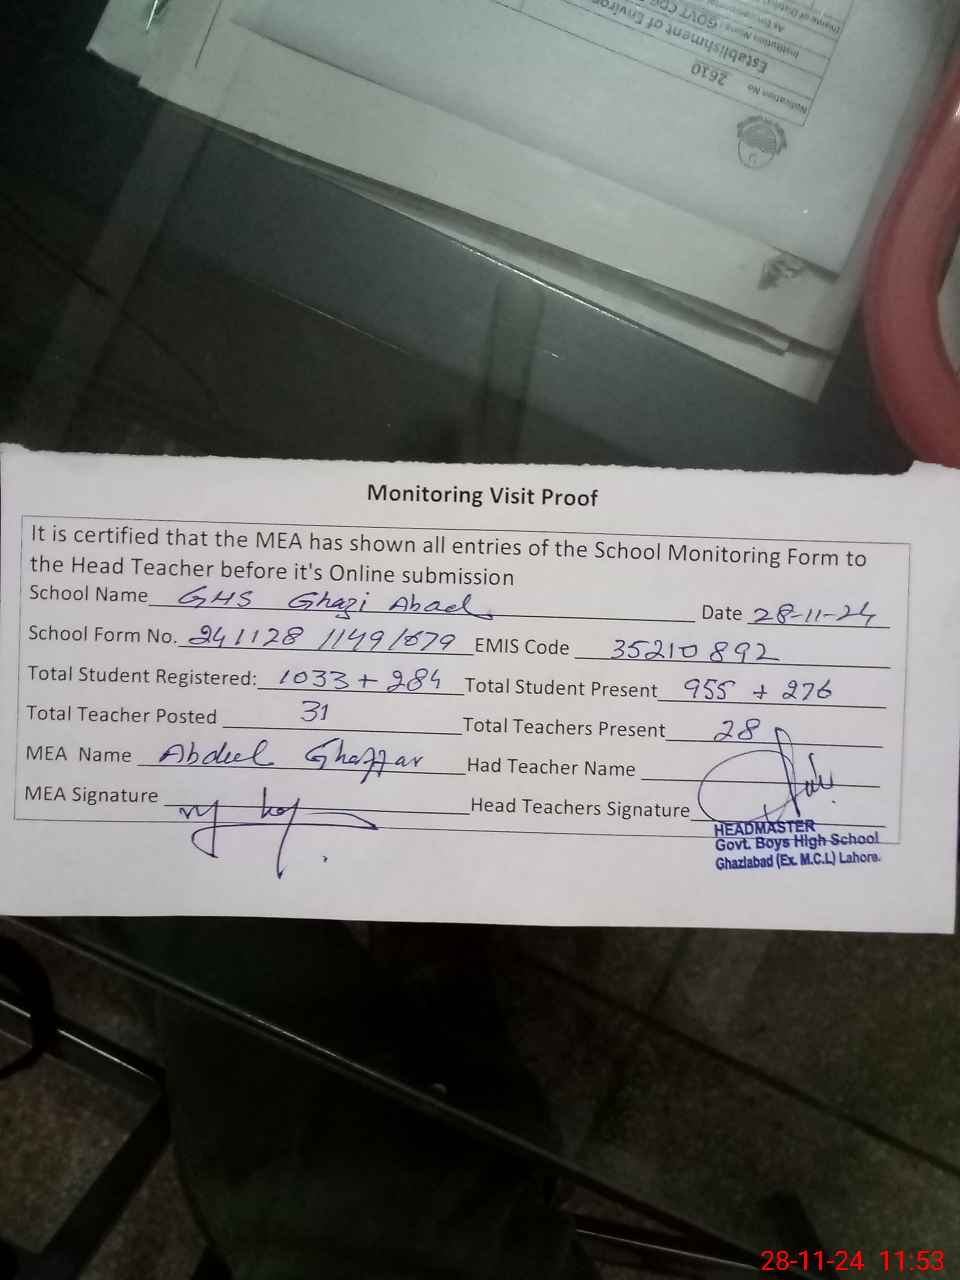 Notivation No 2610
Establishment of Environ
Institution Name GOVT CDG
Monitoring Visit Proof
It is certified that the MEA has shown all entries of the School Monitoring Form to
the Head Teacher before it's Online submission
School Name GHS Ghazi Abad Date 28-11-24
School Form No. 241128 1149 1679 EMIS Code 35210892
Total Student Registered: 1033 + 284 Total Student Present 955 + 276
Total Teacher Posted 31 Total Teachers Present 28
MEA Name Abdul Ghaffar Had Teacher Name
MEA Signature Head Teachers Signature
HEADMASTER
Govt. Boys High School
Ghaziabad (Ex. M.C.L) Lahore.
28-11-24 11:53